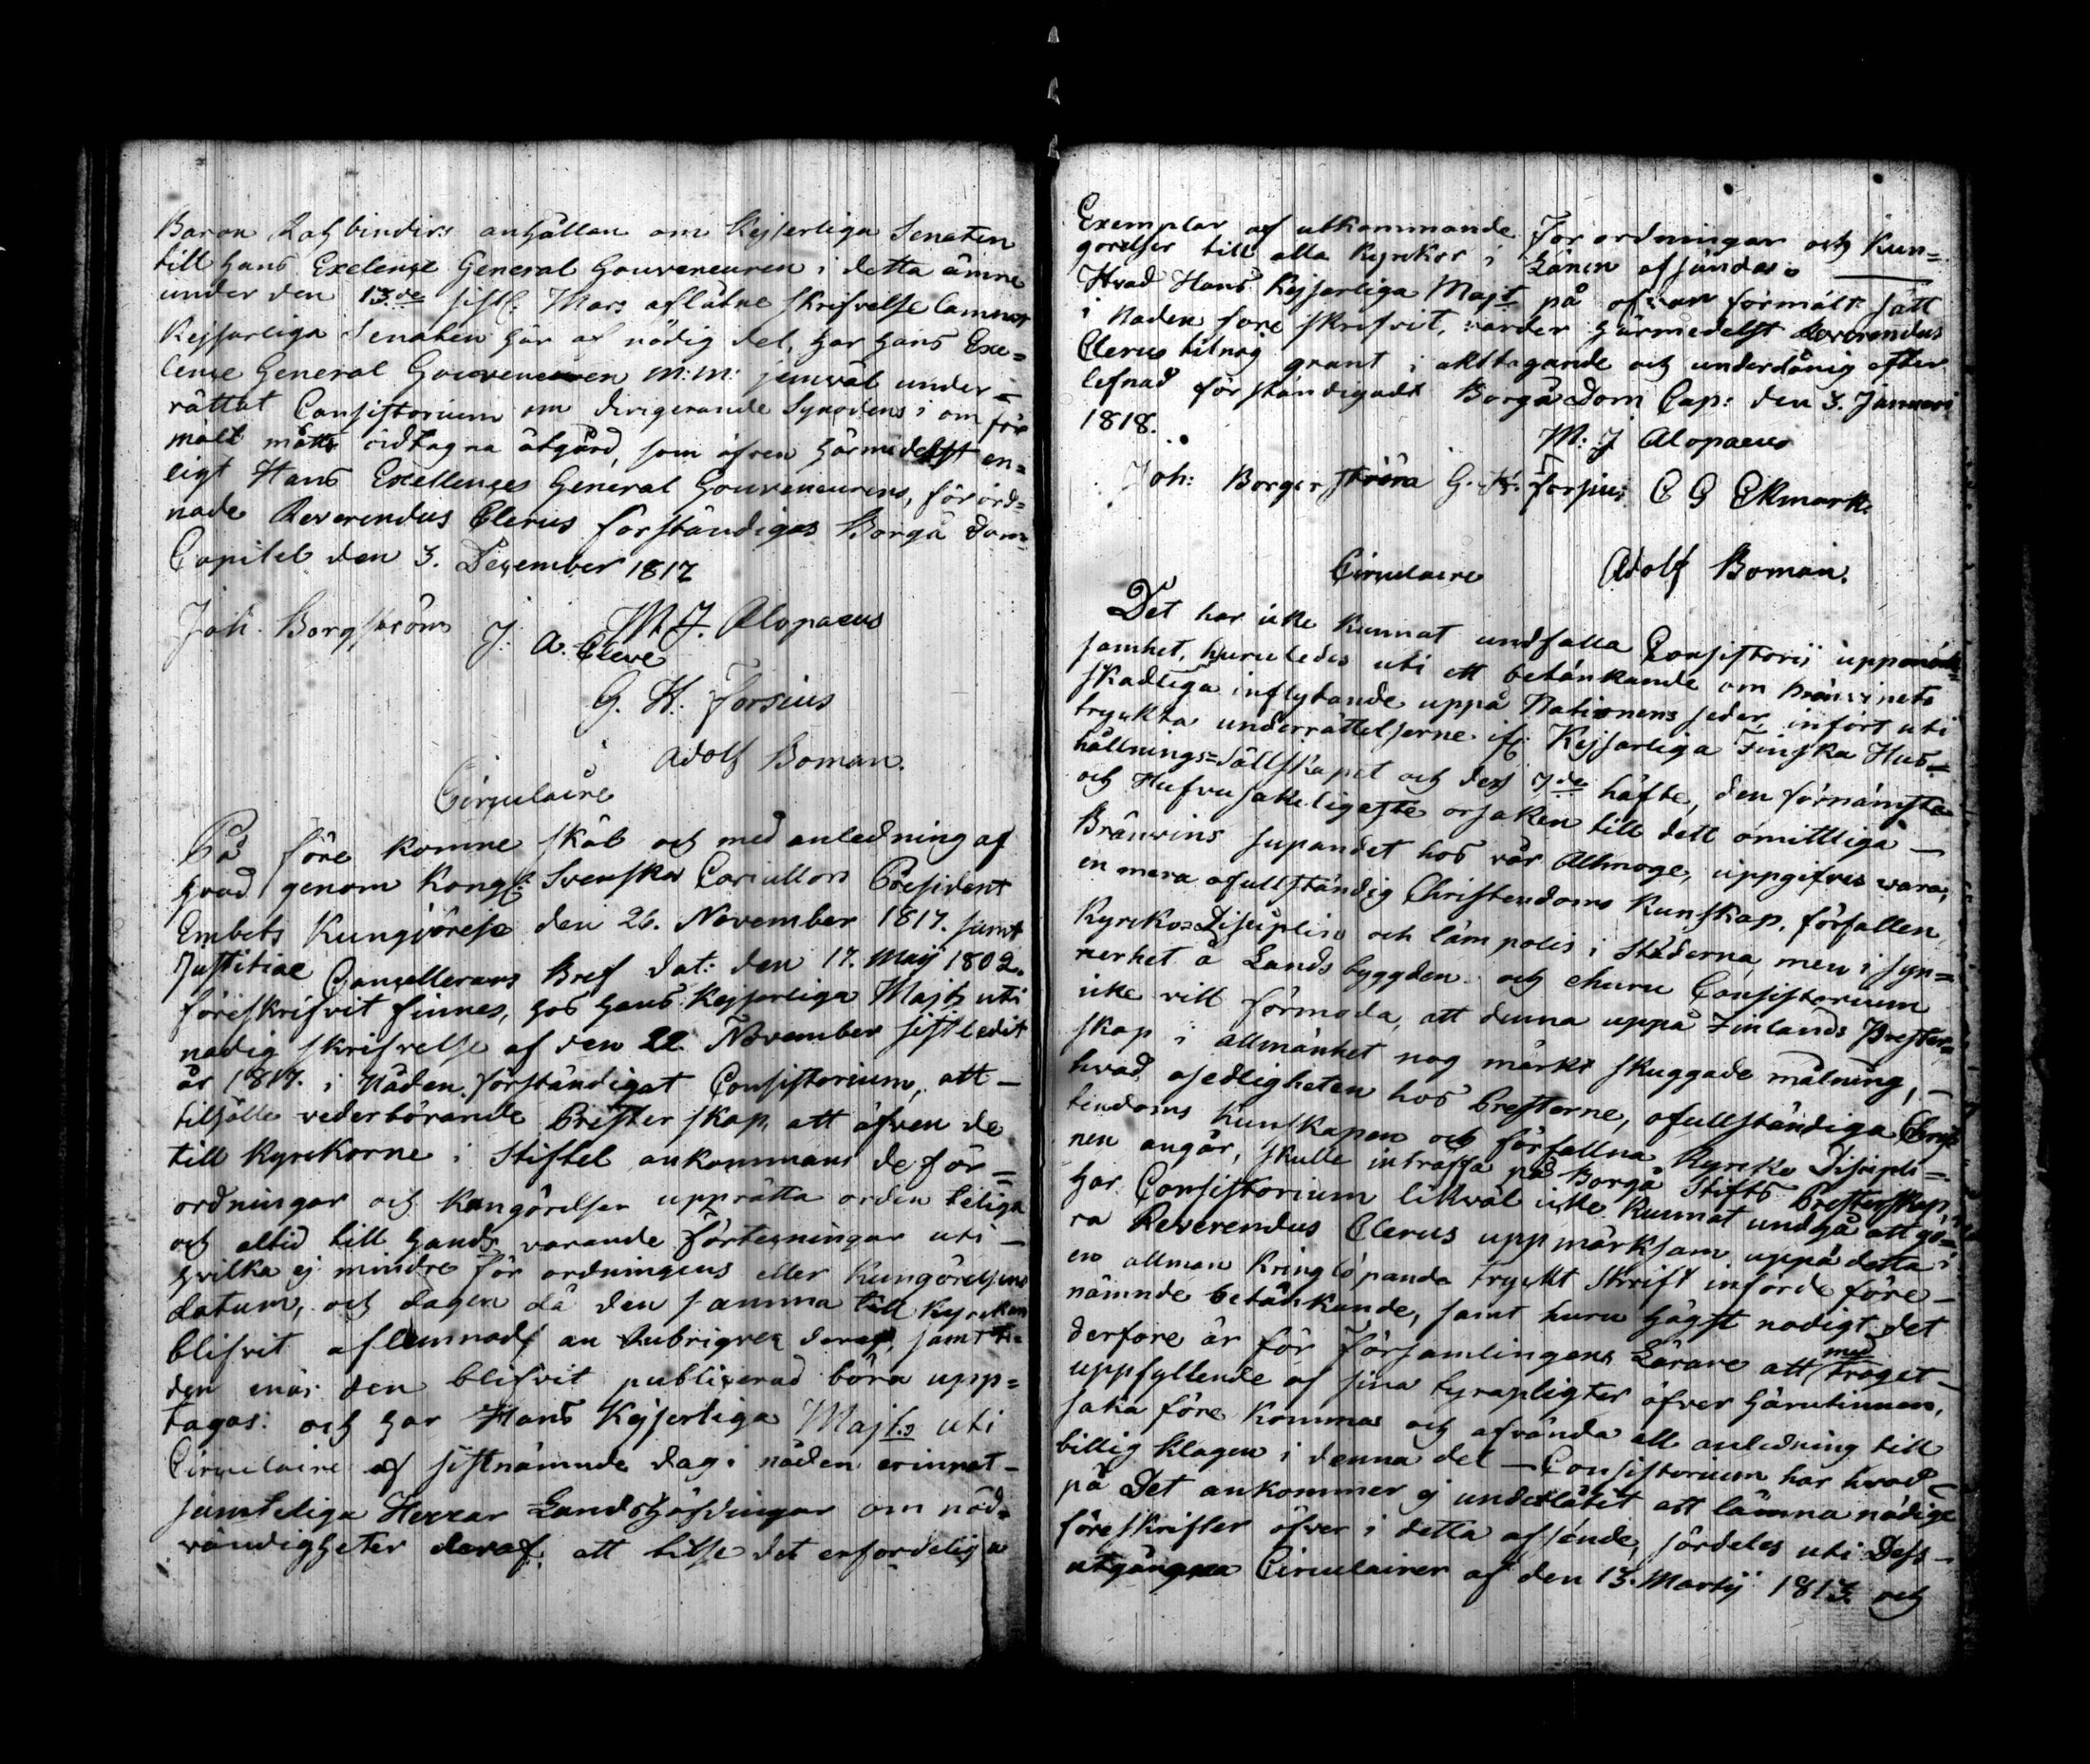 Baron Rotkirchs anhållan om Kejserliga Senaten
till hans Exelense General Gouverneuren i detta ämne
under den 13de sistl: Mars aflåtne skrifvelse lämnat
Kejserliga Senaten här af nödig del, har hans Exe=
lense General Gouverneuren m:m: jemväl under=
rättat Consistorium om dirigerande Synodens i om för
mält måtto vidtagna åtgärd, som äfven härmedelst en=
ligt Hans Excellenses General Gouverneurens, förord=
nade Reverendus Clerus förständigas Borgå Dom=
Capitel den 3. December 1817
M. J. Alopaeus
Joh. Borgström J. A. Cleve
G. H. Forsius
Adolf Boman.
Circulaire
På före komne skäl och med anledning af
hvad genom Kongl: Svenska Cancellors President
Embets Kungjörelse den 26. November 1817. samt
Justitiae Cancellerans Bref dat: den 17. Maij 1802.
föreskrifvit finnes, har hans Kejserliga Majts uti
nådig skrifvelse af den 22 November sistledit
år 1817. i Nåden förständigat Consistorium, att –
tilhålle vederbörande Presterskap, att äfven de
till Kyrckorne i Stiftet ankommande för=
ordningar och Kungörelser upprätta ordenteliga
och altid till hands varande förtekningar uti –
hvilka ej mindre för ordningens eller Kungörelsens
datum, och dagen då den samma till Kyrckan
blifvit aflemnad, an Rubriqven deraf, samt ti=
den när den blifvit publicerad böra upp=
tagas: och har Hans Kejserliga Majts uti
Circulaire af sistnämnde dag i nåden erinrat –
samteliga Herrar Landshöfdingar om nöd=
vändigheten deraf, att tilse det erforderliga
Exemplar af utkommande Förordningar och Kun=
görelser till alla Kyrckor i Länen afsändas. ―
Hvad Hans Kejserliga Majt på ofvan förmält sätt
i Naden föreskrifvit, varder härmedelst Reverendus
Clerus til nog grant i akttagande och underdånig efter
lefnad förständigadt Borgå Dom Cap: den 3. Januari
1818.
M: J Alopaeus
Joh: Borgerström G. H. Forsius C G Ekmark.
Adolf Boman.
Circulaire
Det har icke kunnat undfalla Consistorii uppmärk=
samhet, huruledes uti ett betänkande om Bränvinets
skadliga inflytande uppå Nationens seder, infört uti
tryckta underrättelserne if: Kejserliga Finska Hus=
hållnings=Sällskapet och dess 7de häfte, den förnämsta
och Hufvusakeligaste orsaken till dett omittliga –
Bränvins supandet hos vår Allmoge, uppgifves vara,
en mera ofullständig Christendoms kunskap, förfallen
Kyrcko=Disciplin och läm polis i Städerna, men i syn=
nerhet å Lands byggden. och ehuru Consistorium
icke vill förmoda, att denna uppå Finlands Prester=
skap i allmänhet nog märkt skuggade målning, –
hvad osedligheten hos Presterne, ofullständiga Chris
tendoms kunskapen och förfallna Kyrcko Discipli=
nen angår, skulle inträffa på Borgå Stifts Presterskap,
har Consistorium likväl icke kunnat undgå att gö=
ra Reverendus Clerus uppmärksam uppå detta i
en allmän kringlöpanda tryckt Skrift införde före –
nämnde betänkande, samt huru högst nödigt det
derfore är för Församlingens Lärare att med troget –
uppfyllende af sina Lyrapligter öfver härutinnan,
saka före komma och afvända all anledning till
billig klagen i denna del – Consistorium har hvad
på Det ankommer ej underlåtit att lämna nödige
föreskrifter öfver i detta afseende, särdeles uti Dess –
utgångna Circulairer af den 13. Martij 1813 och